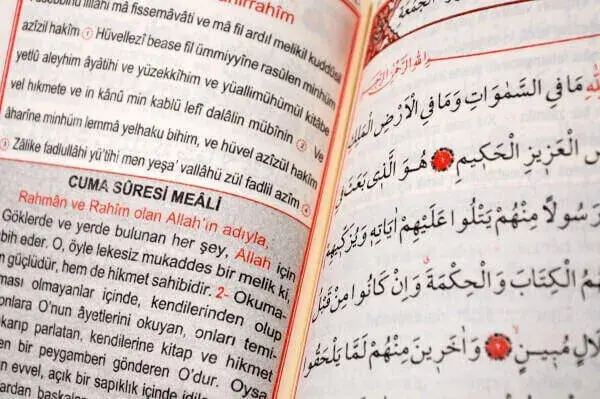 lillâhi mâ fissemâvâti ve mâ fil ardıl melikil kuddûsil
azîzil hakîm ① Hüvellezî bease fil ümmiyyîne rasûlen minhüm
yetlû aleyhim âyâtihi ve yüzekkîhim ve yüallimühümül kitâbe
vel hıkmete ve in kânû min kablü lefî dalâlin mübînin ② Ve
âharîne minhüm lemmâ yelhaku bihim, ve hüvel azîzül hakîm
③ Zâlike fadlullâhi yü'tîhi men yeşa' vallâhü zül fadlil azîm ④
CUMA SÛRESİ MEÂLİ
Rahmân ve Rahîm olan Allah'ın adıyla,
Göklerde ve yerde bulunan her şey, Allah için
bih eder. O, öyle lekesiz mukaddes bir melik ki,
güçlüdür, hem de hikmet sahibidir. 2- Okuma-
ması olmayanlar içinde, kendilerinden olup
onlara O'nun âyetlerini okuyan, onları temi-
parlatan, kendilerine kitap ve hikmet
bir peygamberi gönderen O'dur. Oysa
evvel, açık bir sapıklık içinde idiler
الجمعة
مَا فِي السَّمٰوَاتِ وَمَا فِي الْاَرْضِ الْمَلِكِ
الْعَزِيزِ الْحَكِيمِ ١ هُوَ الَّذِي بَعَثَ فِي
رَسُولاً مِنْهُمْ يَتْلُوا عَلَيْهِمْ اٰيَاتِهِ وَيُزَكِّيهِمْ
الْكِتَابَ وَالْحِكْمَةَ وَاِنْ كَانُوا مِنْ قَبْلُ
مُبِينٍ ٢ وَاٰخَرِينَ مِنْهُمْ لَمَّا يَلْحَقُوا